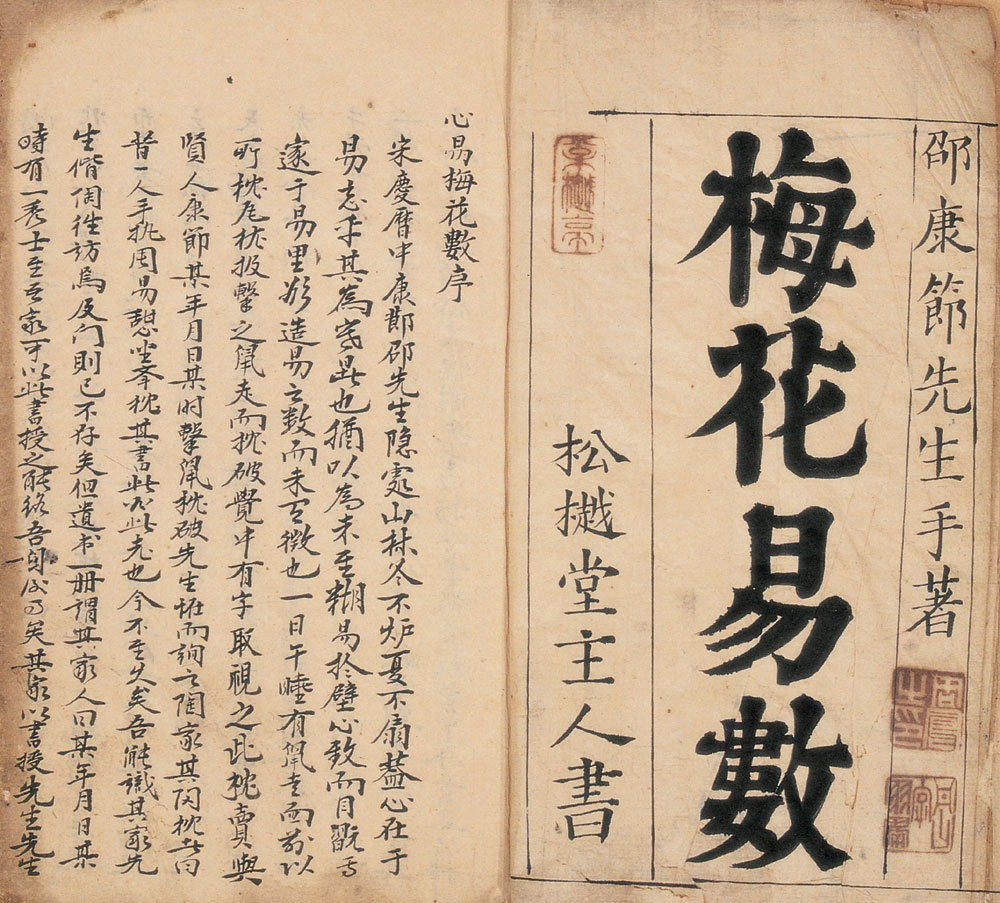 邵康節先生手著
梅花易數
松樾堂主人書
心易梅花數序
宋慶曆中康節邵先生隱處山林冬不炉夏不扇蓋心在于
易忘乎其為寒暑也猶以為未至糊易於壁心致而目翫焉
邃于易里欲造易之数而未有徵也一日午睡有鼠走而前以
所枕瓦枕投擊之鼠走而枕破覺中有字取視之此枕賣與
賢人康節某年月日某时擊鼠枕破先生怪而詢之陶家其陶枕者曰
昔一人手执周易憩坐挙枕其書必此老也今不至久矣吾能識其家先
生偕陶往訪焉及门則已不存矣但遗书一册謂其家人曰某年月日某
時有一秀士至吾家可以此書授之能終吾身後事矣其家以書授先生先生